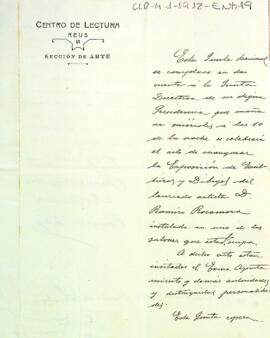 CENTRO DE LECTURA
REUS
SECCIÓN DE ARTE
Esta Junta Seccional
se complace en dar
cuenta á la Junta
Directiva de su digna
Presidencia que maña
na miércoles á las 10
de la noche se celebrará
el acto de inaugurar
la Exposición de
y Dibujos del
laureado artista D.
Ramiro Rocamora
instalada en uno de los
salones que esta
A dicho acto están
invitados el Excmo. Ayunta
miento y demás autoridades
y distinguidas personalida
des.
Esta Junta espera